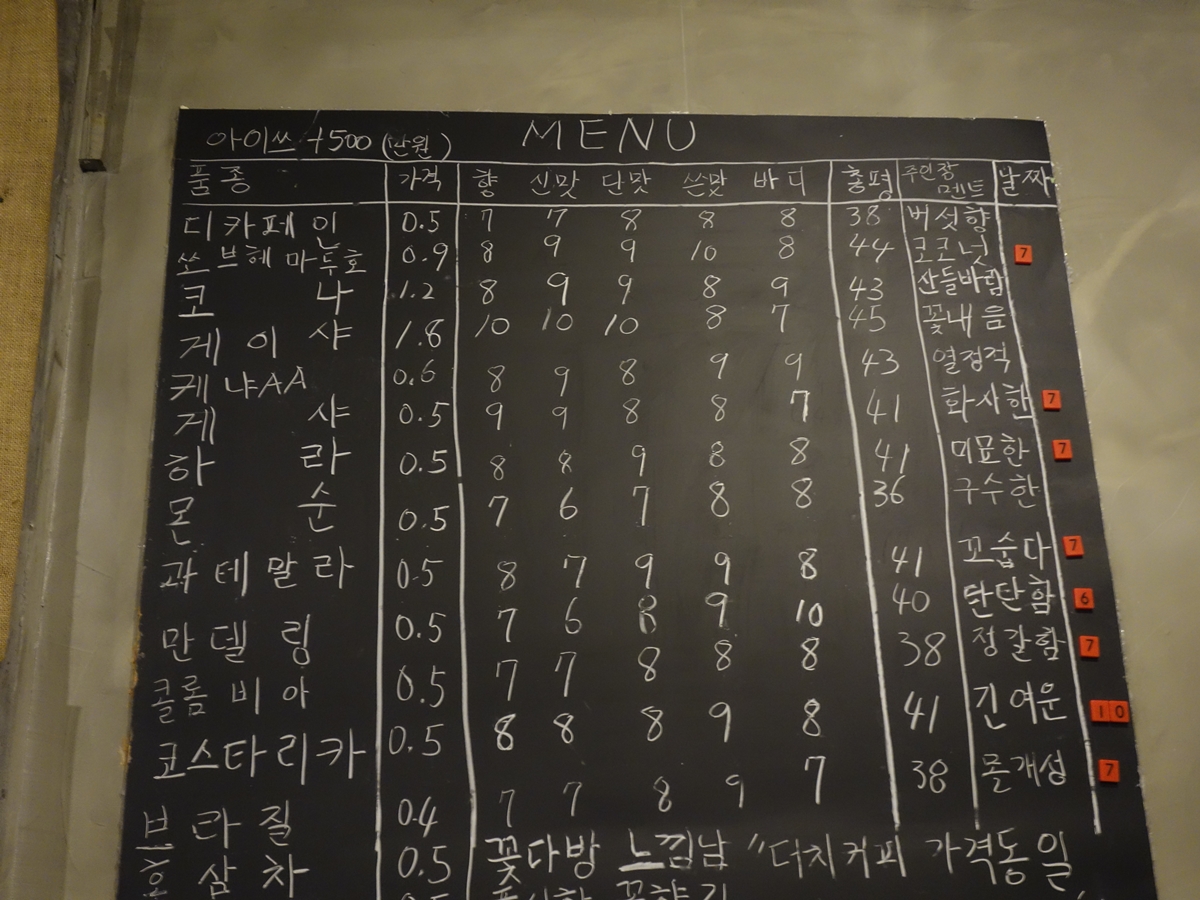 아이쓰 +500 (만원) MENU
품종 가격 향 신맛 단맛 쓴맛 바디 총평 주인장 멘트 날짜
디카페인 0.5 7 7 8 8 8 38 버섯향
쏘브헤마두호 0.9 8 9 9 10 8 44 코코넛 7
코나 1.2 8 9 9 8 9 43 산들바람
게이샤 1.8 10 10 10 8 7 45 꽃내음
케냐AA 0.6 8 9 8 9 9 43 열정적
게샤 0.5 9 9 8 8 7 41 화사한 7
하라 0.5 8 8 9 8 8 41 미묘한 7
몬순 0.5 7 6 7 8 8 36 구수한
과테말라 0.5 8 7 9 9 8 41 꼬숩다 7
만델링 0.5 7 6 8 9 10 40 단단함 6
콜롬비아 0.5 7 7 8 8 8 38 정갈함 7
코스타리카 0.5 8 8 8 9 8 41 긴여운 10
브라질 0.4 7 7 8 9 7 38 몰개성 7
홍삼차 0.5 꽃다방 느낌남 "더치커피 가격동일,